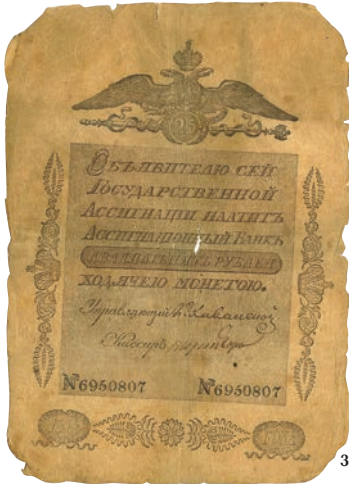 25
Объявителю сей
Государственной
Ассигнации платитъ
Ассигнаціонный Банкъ
двадцать пять рублей
ходячею монетою.
Управляющій
Кассиръ
№6950807 №6950807
3